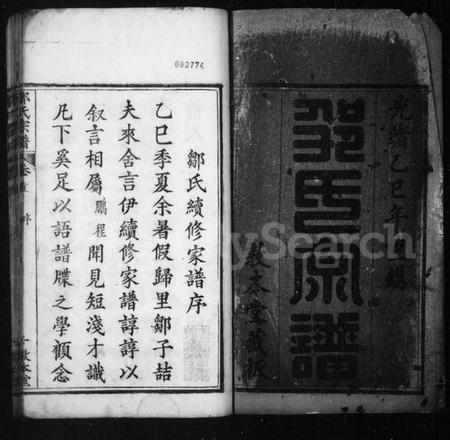 083774
光緒乙巳年
鄒氏宗譜
敦本堂藏板
鄒氏續修家譜序
乙巳季夏余暑假歸里鄒子喆
夫來舍言伊續修家譜諄諄以
叙言相屬鵬程聞見短淺才識
凡下奚足以語譜牒之學顧念
鄒氏宗譜
卷首
序
敦本堂
Search